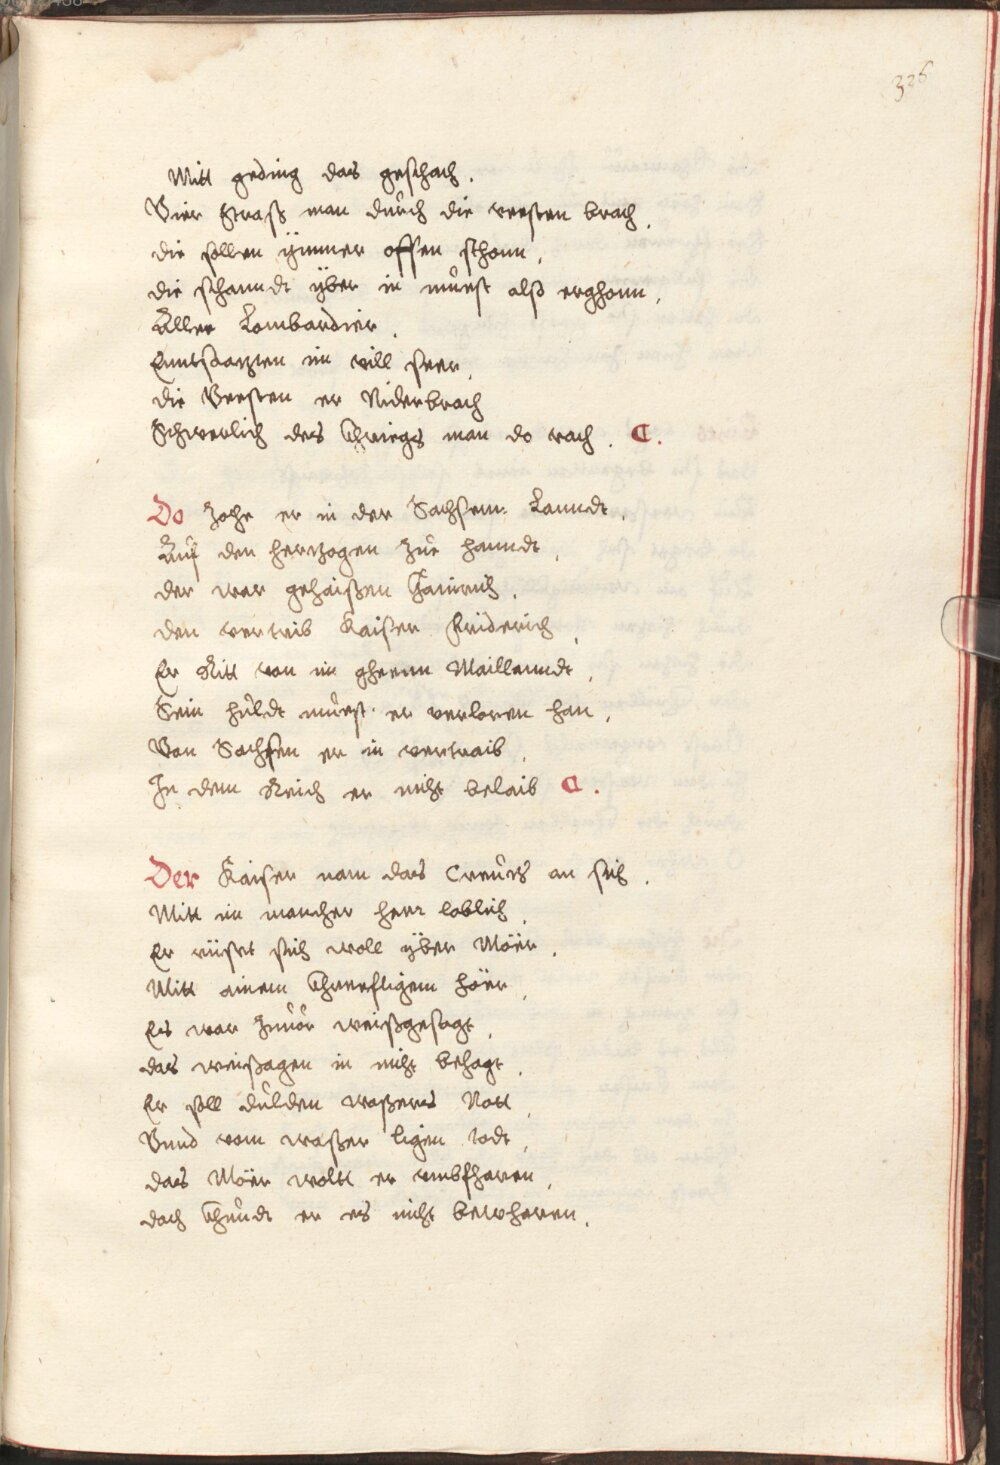 326
Mitt geding das geschach.
Vier Strass man durch die vessten brach,
die sollen ÿmmer offen schonn,
die schanndt ÿber in muest alss erghonn,
Aller Lombardier.
Enntsatzten im vill seer,
die Vessten er Niderbrach
Schwerlich des Khriegs man do rach. C.
Do zohe er in der Sachsenn Lanndt,
Auf den Hertzogen zue hanndt,
der war gehaissen Hainrich,
den vertrib Kaiser Friderich,
Er Ritt von im ghenn Maillanndt,
Sein huldt muest er verloren han,
Von Sachssen er in vertraib,
In dem Reich er nicht belaib C.
Der Kaiser nam das Creutz an sich.
Mitt im mancher herr loblich,
Er rüsst sich woll ÿber Möer,
Mitt ainem Khrefftigem höer,
Es war zuuor weissgesagt,
das weissagen in nicht behagt,
Er soll dulden wassers Nott,
Vnnd vom wasser ligen todt,
das Möer wollt er vmbfharen,
doch khundt er es nicht bewharen.